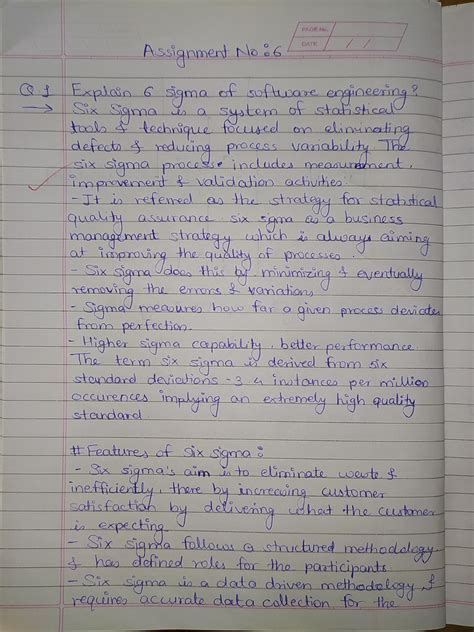 PAGE No.
DATE / /
Assignment No : 6
Q 1 Explain 6 sigma of software engineering?
→ Six Sigma is a system of statistical
tools & technique focused on eliminating
defects & reducing process variability. The
six sigma process includes measurement,
improvement & validation activities.
- It is referred as the strategy for statistical
quality assurance. six sigma is a business
management strategy which is always aiming
at improving the quality of processes.
- Six sigma does this by minimizing & eventually
removing the errors & variations
- Sigma measures how far a given process deviates
from perfection.
- Higher sigma capability, better performance
The term six sigma is derived from six
standard deviations - 3.4 instances per million
occurences implying an extremely high quality
standard
# Features of Six sigma :
- Six sigma's aim is to eliminate waste &
inefficiently, there by increasing customer
satisfaction by delivering what the customer
is expecting.
- Six sigma follows a structured methodology,
& has defined roles for the participants
- Six sigma is a data driven methodology, &
requires accurate data collection for the